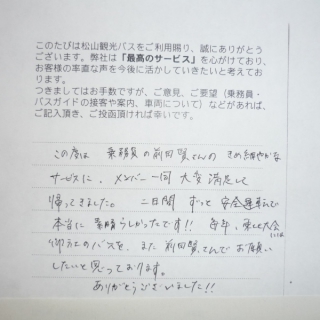 このたびは松山観光バスをご利用賜り、誠にありがとう
ございます。弊社は「最高のサービス」を心がけており、
お客様の率直な声を今後に活かしていきたいと考えてお
ります。
つきましてはお手数ですが、ご意見、ご要望（乗務員・
バスガイドの接客や案内、車両について）などがあれば、
ご記入頂き、ご投函頂ければ幸いです。
この度は 乗務員の前田賢さんの きめ細やかな
サービスに、メンバー一同 大変 満足して
帰ってきました。 二日間 ずっと 安全運転で
本当に 素晴らしかったです!! 毎年、
のバスを、また 前田賢さんで お願い
したいと思っております。
ありがとうございました!!